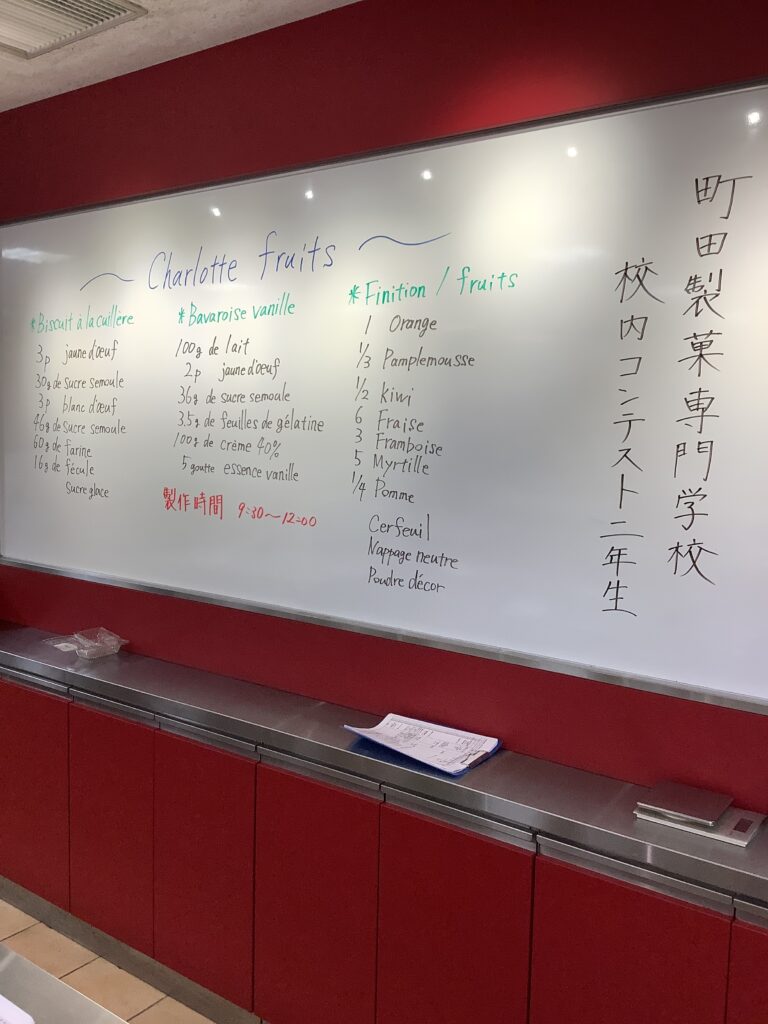 Charlotte fruits
*Biscuit à la cuillère
3p jaune d'œuf
30g de sucre semoule
3p blanc d'œuf
46g de sucre semoule
60g de farine
16g de fécule
sucre glace
*Bavaroise vanille
100g de lait
2p jaune d'œuf
36g de sucre semoule
3.5g de feuilles de gélatine
100g de crème 40%
5 goutte essence vanille
製作時間 9:30〜12:00
*Finition / fruits
1 Orange
1/3 Pamplemousse
1/2 kiwi
6 Fraise
3 Framboise
5 Myrtille
1/4 Pomme
Cerfeuil
Nappage neutre
Poudre décor
町田製菓専門学校
校内コンテスト二年生